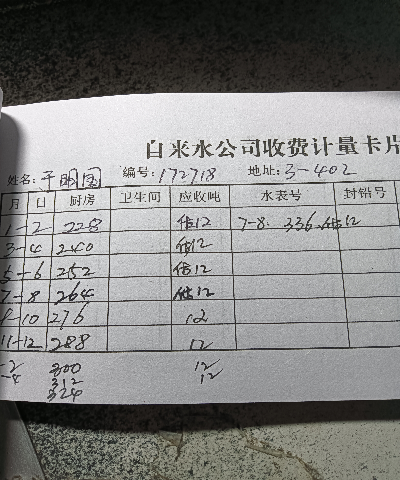 自来水公司收费计量卡片
姓名: 于明国 编号: 172718 地址: 3-402
月 日 厨房 卫生间 应收吨 水表号 封铅号
1-2 228 估12 7-8. 336 估12
3-4 240 估12
5-6 252 估12
7-8 264 估12
9-10 276 12
11-12 288 12
-2 300 12
-4 312 12
324